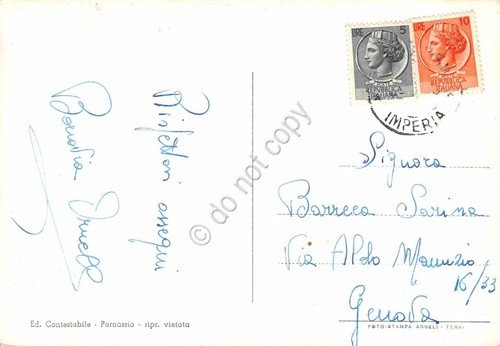 Rispettosi ossequi
LIRE 5
LIRE 10
REPUBBLICA
ITALIANA
REPUBBLICA
ITALIANA
IMPERIA
Signora
Barreca Sarina
Via Aldo Manuzio
16/33
Genova
Ed. Contestabile - Pornassio - ripr. vietata
FOTO-STAMPA ANGELI - TERNI
© do not copy